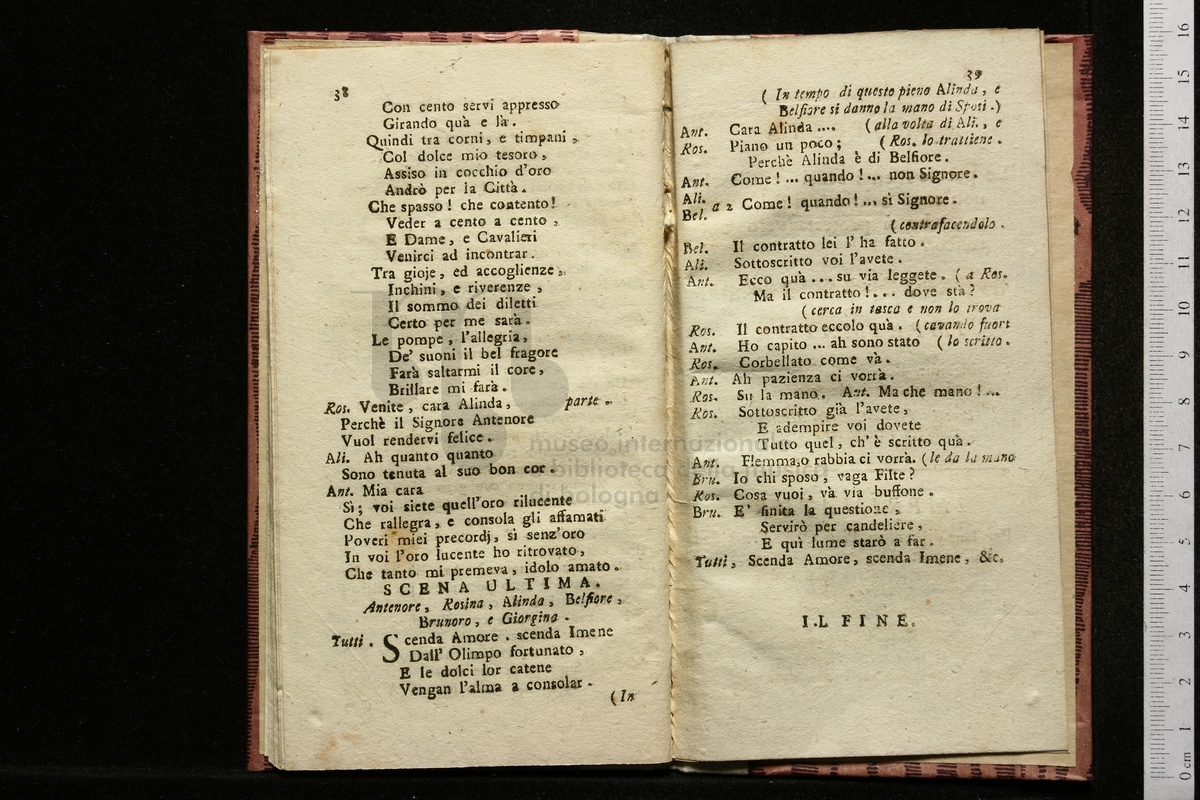 38
Con cento servi appresso
Girando quà e là.
Quindi tra corni, e timpani,
Col dolce mio tesoro,
Assiso in cocchio d'oro
Andrò per la Città.
Che spasso! che contento!
Veder a cento a cento,
E Dame, e Cavalieri
Venirci ad incontrar.
Tra gioje, ed accoglienze,
Inchini, e riverenze,
Il sommo dei diletti
Certo per me sarà.
Le pompe, l'allegria,
De' suoni il bel fragore
Farà saltarmi il core,
Brillare mi farà. parte.
Ros. Venite, cara Alinda,
Perchè il Signore Antenore
Vuol rendervi felice.
Ali. Ah quanto quanto
Sono tenuta al suo bon cor.
Ant. Mia cara
Sì; voi siete quell'oro rilucente
Che rallegra, e consola gli affamati
Poveri miei precordj, sì senz'oro
In voi l'oro lucente ho ritrovato,
Che tanto mi premeva, idolo amato.
SCENA ULTIMA.
Antenore, Rosina, Alinda, Belfiore,
Brunoro, e Giorgina.
Tutti. Scenda Amore. scenda Imene
Dall' Olimpo fortunato,
E le dolci lor catene
Vengan l'alma a consolar.
(In
39
( In tempo di questo pieno Alinda, e
Belfiore si danno la mano di Sposi.)
Ant. Cara Alinda .... (alla volta di Ali., e
Ros. Piano un poco; ( Ros. lo trattiene.
Perchè Alinda è di Belfiore.
Ant. Come! ... quando!... non Signore.
Ali.
Bel. a 2 Come! quando!... sì Signore.
(contrafacendolo.
Bel. Il contratto lei l' ha fatto.
Ali. Sottoscritto voi l'avete.
Ant. Ecco quà ... su via leggete. ( a Ros.
Ma il contratto!... dove stà?
( cerca in tasca e non lo trova
Ros. Il contratto eccolo quà. (cavando fuori
Ant. Ho capito ... ah sono stato (lo scritto.
Ros. Corbellato come và.
Ant. Ah pazienza ci vorrà.
Ros. Su la mano. Ant. Ma che mano!...
Ros. Sottoscritto già l'avete,
E adempire voi dovete
Tutto quel, ch' è scritto quà.
Ant. Flemma, o rabbia ci vorrà. (le da la mano
Bru. Io chi sposo, vaga Filte?
Ros. Cosa vuoi, và via buffone.
Bru. E' finita la questione,
Servirò per candeliere,
E quì lume starò a far.
Tutti, Scenda Amore, scenda Imene, &c.
IL FINE.
museo internazionale
e biblioteca della musica
di bologna
0 cm 1 2 3 4 5 6 7 8 9 10 11 12 13 14 15 16